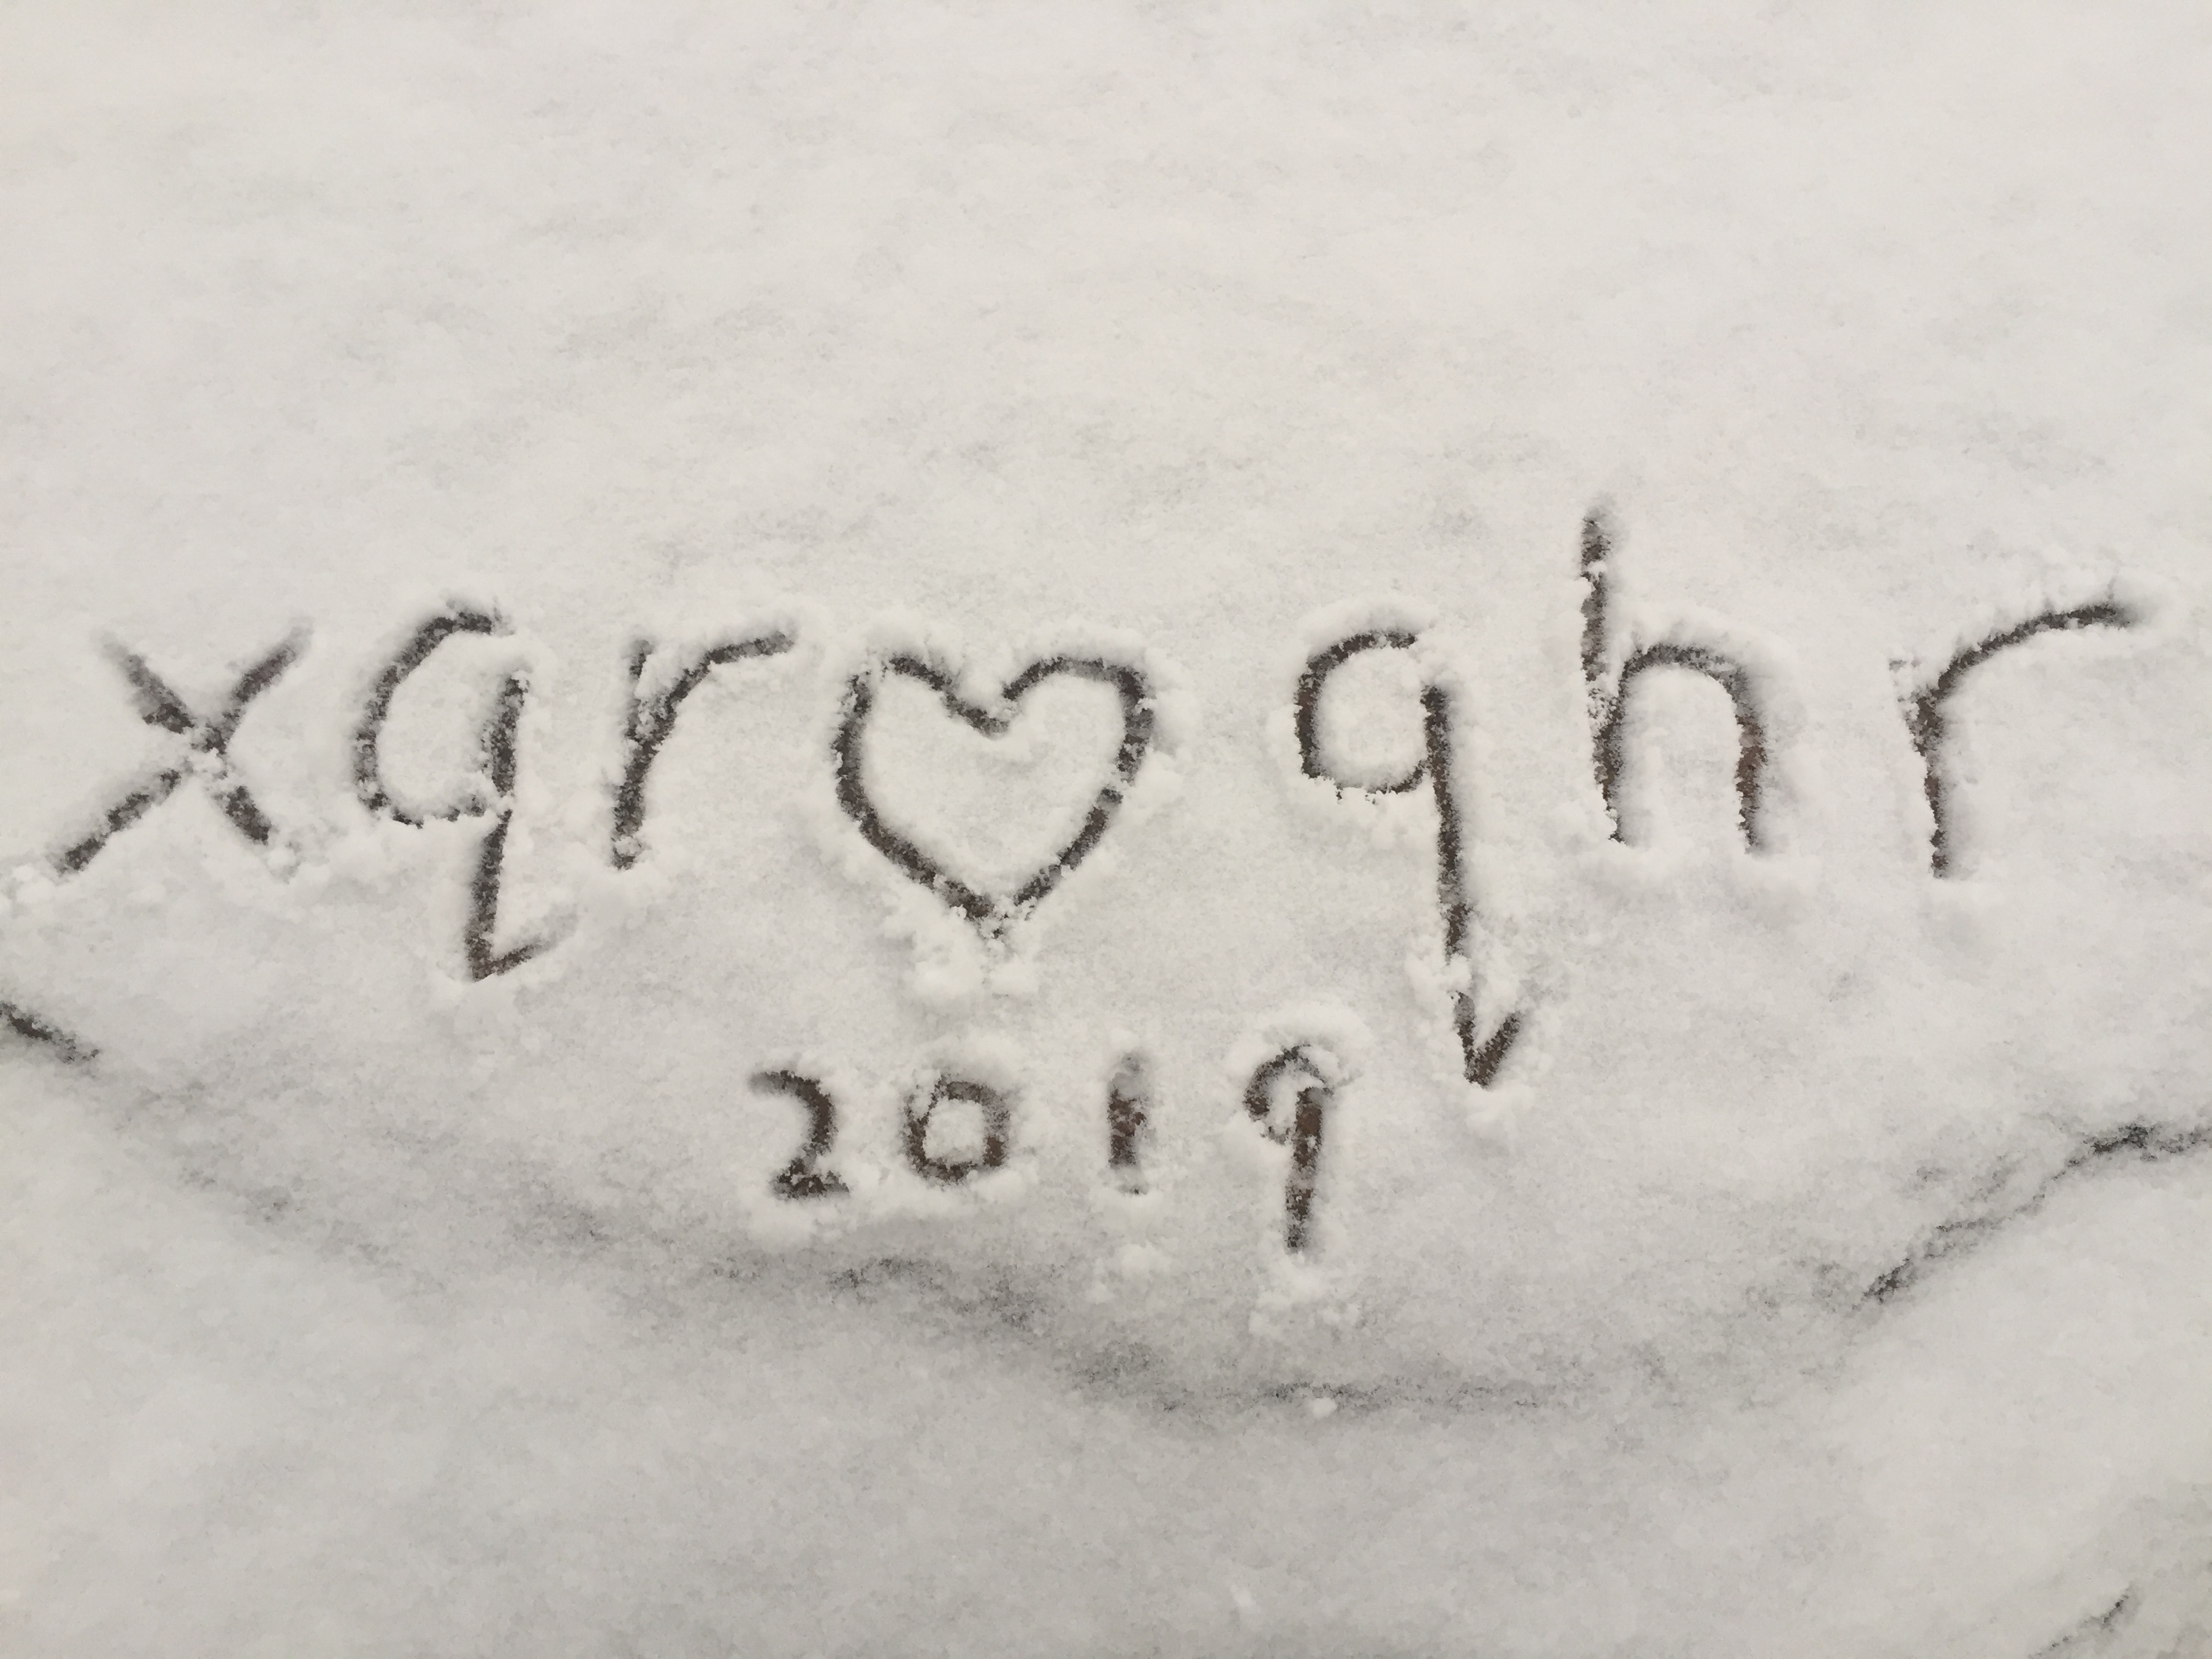 xqr♡qhr
2019